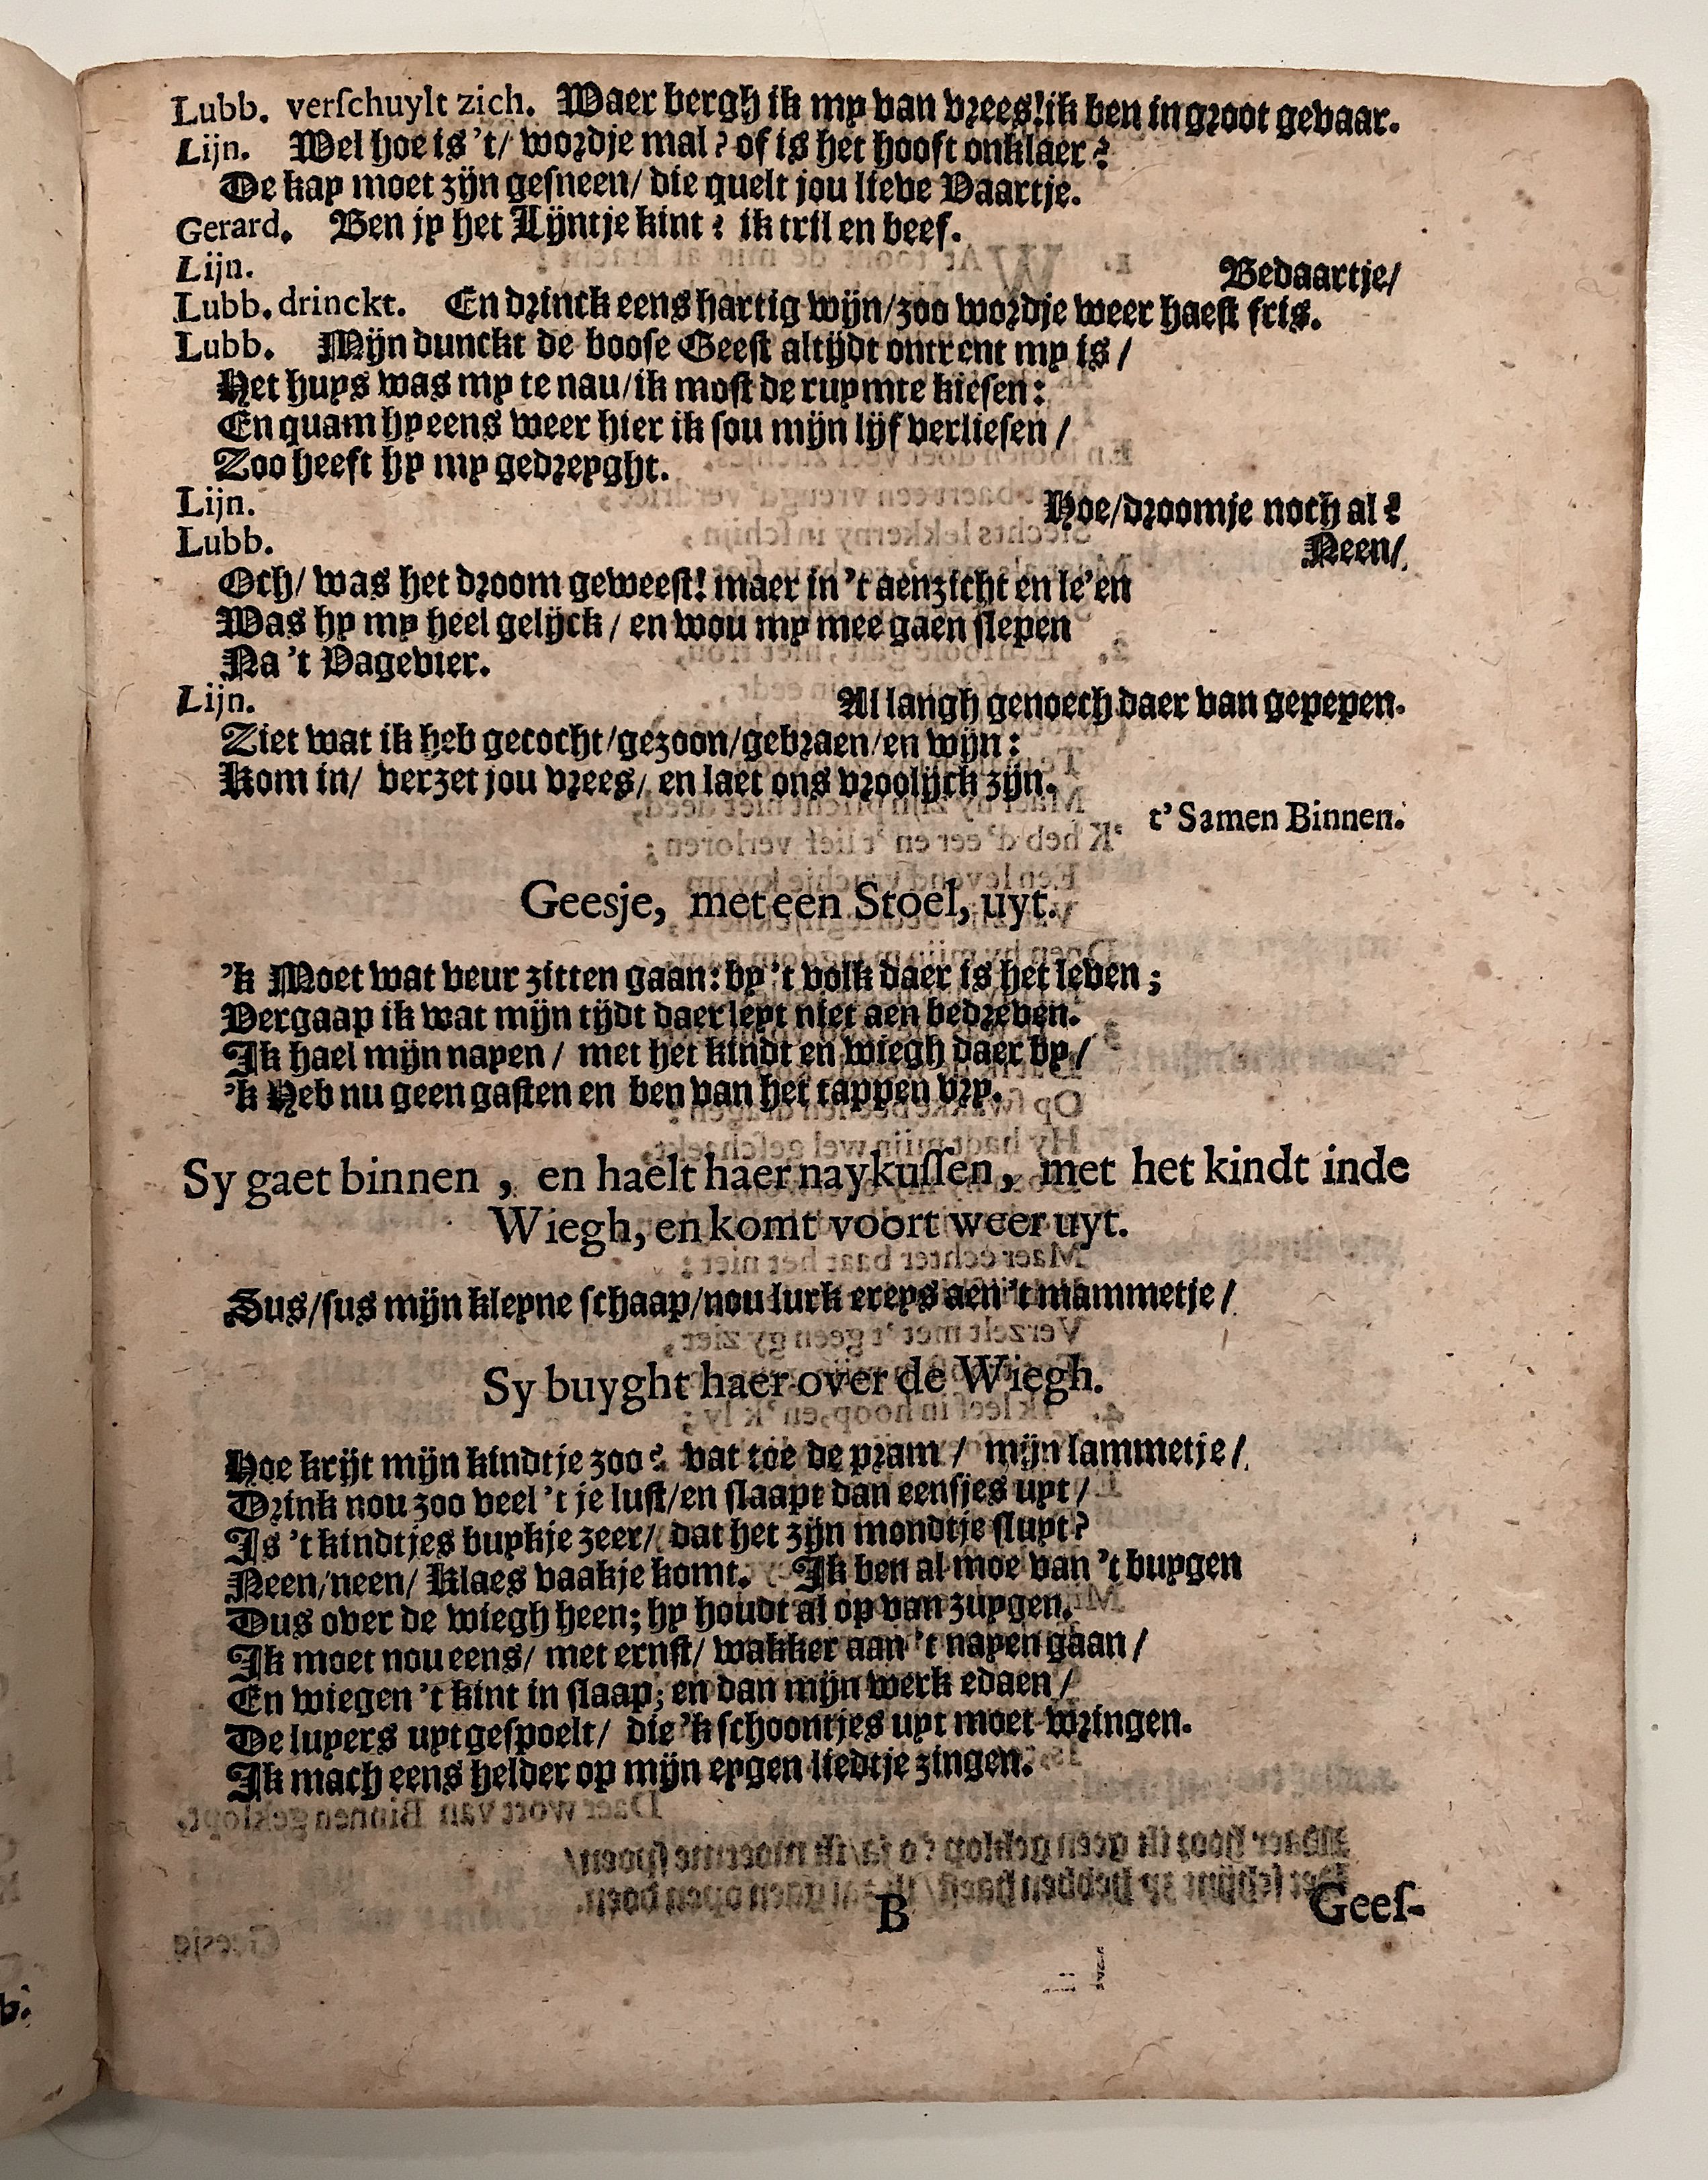 Lubb. verſchuylt zich. Waer bergh ik my van vrees! ik ben in groot gevaar.
Lijn. Wel hoe is 't/ wordje mal? of is het hooft onklaer?
De kap moet zijn geſneen/ die quelt jou lieve Vaartje.
Gerard. Ben jy het Lijntje kint? ik tril en beef.
Lijn. Bedaartje/
Lubb. drinckt. En drinck eens hartig wijn/ zoo wordje weer haeſt fris.
Lubb. Mijn dunckt de booſe Geeſt altijdt ontrent my is/
Het huys was my te nau/ ik moſt de ruymte kieſen:
En quam hy eens weer hier ik ſou mijn lijf verlieſen/
Zoo heeft hy my gedreyght.
Lijn. Hoe/ droomje noch al?
Lubb. Neen/
Och/ was het droom geweeſt! maer in 't aenzicht en le'en
Was hy my heel gelijck/ en wou my mee gaen ſlepen
Na 't Vagevier.
Lijn. Al langh genoech daer van gepepen.
Ziet wat ik heb gecocht/ gezoon/ gebraen/ en wijn:
Kom in/ verzet jou vrees/ en laet ons vroolijck zijn.
t'Samen Binnen.
Geesje, met een Stoel, uyt.
'k Moet wat veur zitten gaan: by 't volk daer is het leven;
Vergaap ik wat mijn tijdt daer leyt niet aen bedreven.
Ik hael mijn nayen/ met het kindt en wiegh daer by/
'k Heb nu geen gaſten en ben van het tappen vry.
Sy gaet binnen, en haelt haer naykuſſen, met het kindt inde
Wiegh, en komt voort weer uyt.
Sus/ ſus mijn kleyne ſchaap/ nou lurk ereys aen 't mammetje/
Sy buyght haer over de Wiegh.
Hoe krijt mijn kindtje zoo? vat toe de pram/ mijn lammetje/
Drink nou zoo veel 't je luſt/ en ſlaapt dan eenſjes uyt/
Is 't kindtjes buykje zeer/ dat het zijn mondtje ſluyt?
Neen/ neen/ Klaes vaakje komt. Ik ben al moe van 't buygen
Dus over de wiegh heen; hy houdt al op van zuygen.
Ik moet nou eens/ met ernſt/ wakker aan 't nayen gaan/
En wiegen 't kint in ſlaap; en dan mijn werk edaen/
De luyers uytgeſpoelt/ die 'k ſchoontjes uyt moet wringen.
Ik mach eens helder op mijn eygen liedtje zingen.
B Geeſ-